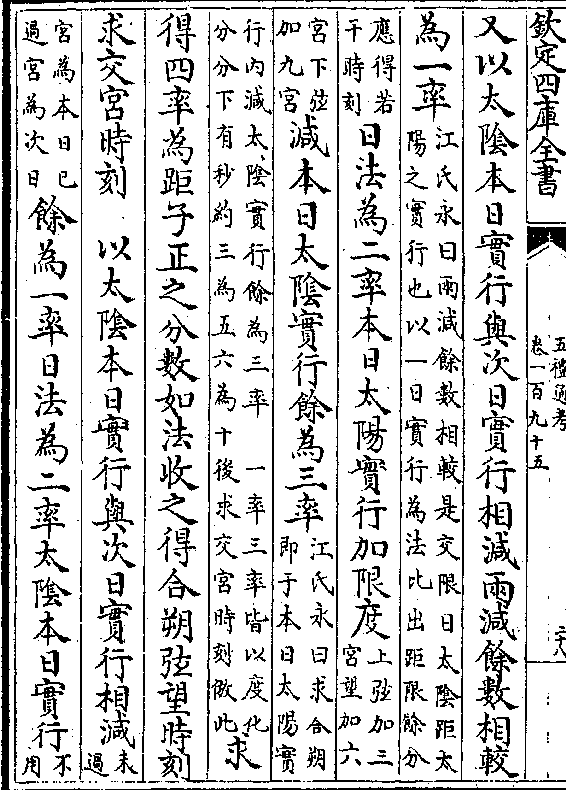 欽定四庫全書
五禮通考
卷一百九十五
又以太陰本日實行與次日實行相減兩減餘數相較
為一率
江氏永曰兩減餘數相較是交限日太陰距太
陽之實行也以一日實行為法比出距限餘分
應得若
干時刻
日法為二率本日太陽實行加限度
上弦加三
宮望加六
宮下弦
加九宮
減本日太陰實行餘為三率
江氏永曰求合朔
即于本日太陽實
行内減太陰實行餘為三率 一率三率皆以度化
分分下有秒約三為五六為十後求交宮時刻倣此
求
得四率為距子正之分數如法收之得合朔弦望時刻
求交宮時刻 以太陰本日實行與次日實行相減
未
過
宮為本日已
過宮為次日
餘為一率日法為二率太陰本日實行
不
用